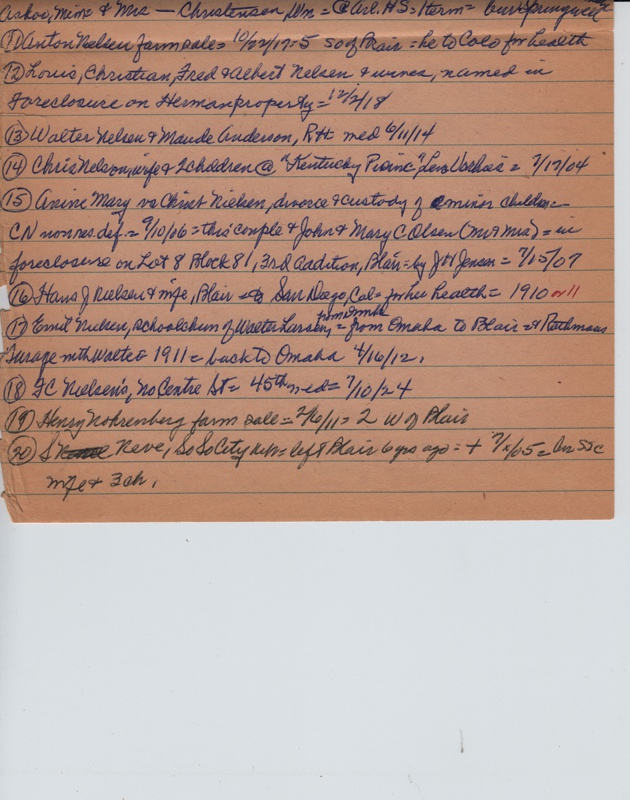 Askov, Minn & Mrs — Christensen, Wm = @ Arl. HS = Herm = buri Springwell
(11) Anton Nielsen farm sale = 10/22/17 = 5 so of Blair = he to Colo for health
(12) Louis, Christian, Fred & Albert Nelsen & wives, named in
foreclosure on Herman property = 12/2/18
(13) Walter Nelsen & Maude Anderson, R#1 med 6/11/14
(14) Chris Nelson, wife & 2 children @ "Kentucky Picnic," = 7/17/04
(15) Anine Mary vs Christ Nielsen, divorce & custody of minor children =
CN nonres def. = 9/10/06 = this couple & John & Mary C Olsen (Mr & Mrs) = in
foreclosure on Lot 8 Block 81, 3rd addition, Blair = by J H Jensen = 7/15/07
(16) Hans J Nielsen & wife, Blair to San Diego, Cal = for her health = 1910 or 11
(17) Emil Nielsen, school chum of Walter Larsen, = from Omaha to Blair = &
Garage with Walter 1911 = back to Omaha 4/16/12.
(18) FC Nielsen's, No Centre St = 45th med = 7/10/24
(19) Henry Nohrenberg farm sale = 2/6/11 = 2 W of Blair
(20) S Neve, So So City Neb = left Blair 6 yrs ago = + = bu SSC
wife & 3 ch.